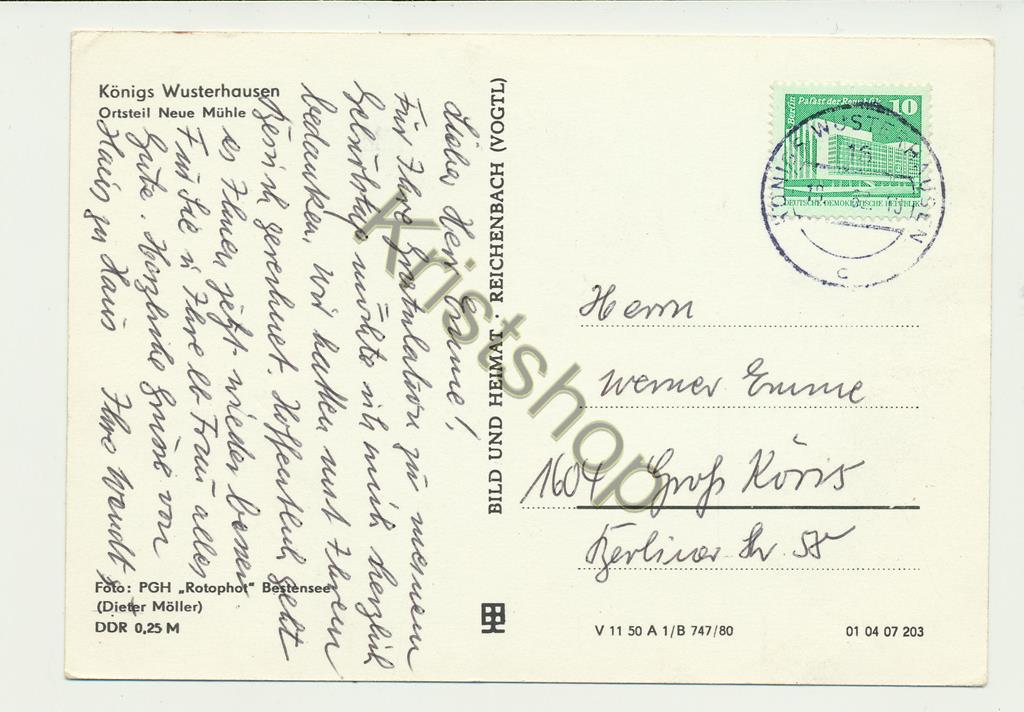 Königs Wusterhausen
Ortsteil Neue Mühle
Lieber Herr Emme!
Für Ihre Gratulation zu meinem
Geburtstag möchte ich mich herzlich
bedanken, wir hatten mit Ihrem
gerechnet. Hoffentlich geht
es Ihnen jetzt wieder besser.
Für Sie u Ihre lb Frau alles
Gute. Herzliche Grüsse von
Haus zu Haus Ihre Wendt
Foto: PGH „Rotophot" Bestensee
(Dieter Möller)
DDR 0,25 M
BILD UND HEIMAT · REICHENBACH (VOGTL)
Berlin Palast der Republik 10
DEUTSCHE DEMOKRATISCHE REPUBLIK
KÖNIGS WUSTERHAUSEN
c
Herrn
Werner Emme
1604 Groß Köris
Berliner Str 58
V 11 50 A 1/B 747/80
01 04 07 203
Kristshop